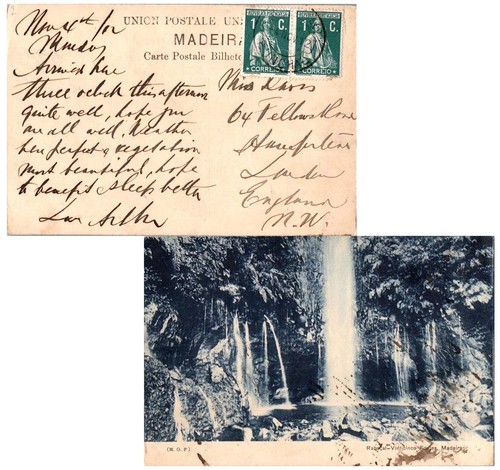 UNION POSTALE UN
MADEIRA
Carte Postale Bilhete
REPUBLICA PORTUGUESA
1 C.
CORREIO
REPUBLICA PORTUGUESA
1 C.
CORREIO
Monday
Arrived here
three o'clock this afternoon
quite well, hope you
are all well, Weather
here perfect & vegetation
most beautiful, hope
to benefit sleep better
Miss Davis
64
London
England
N.W.
(N. O. P.)
Rabaçal- Madeira